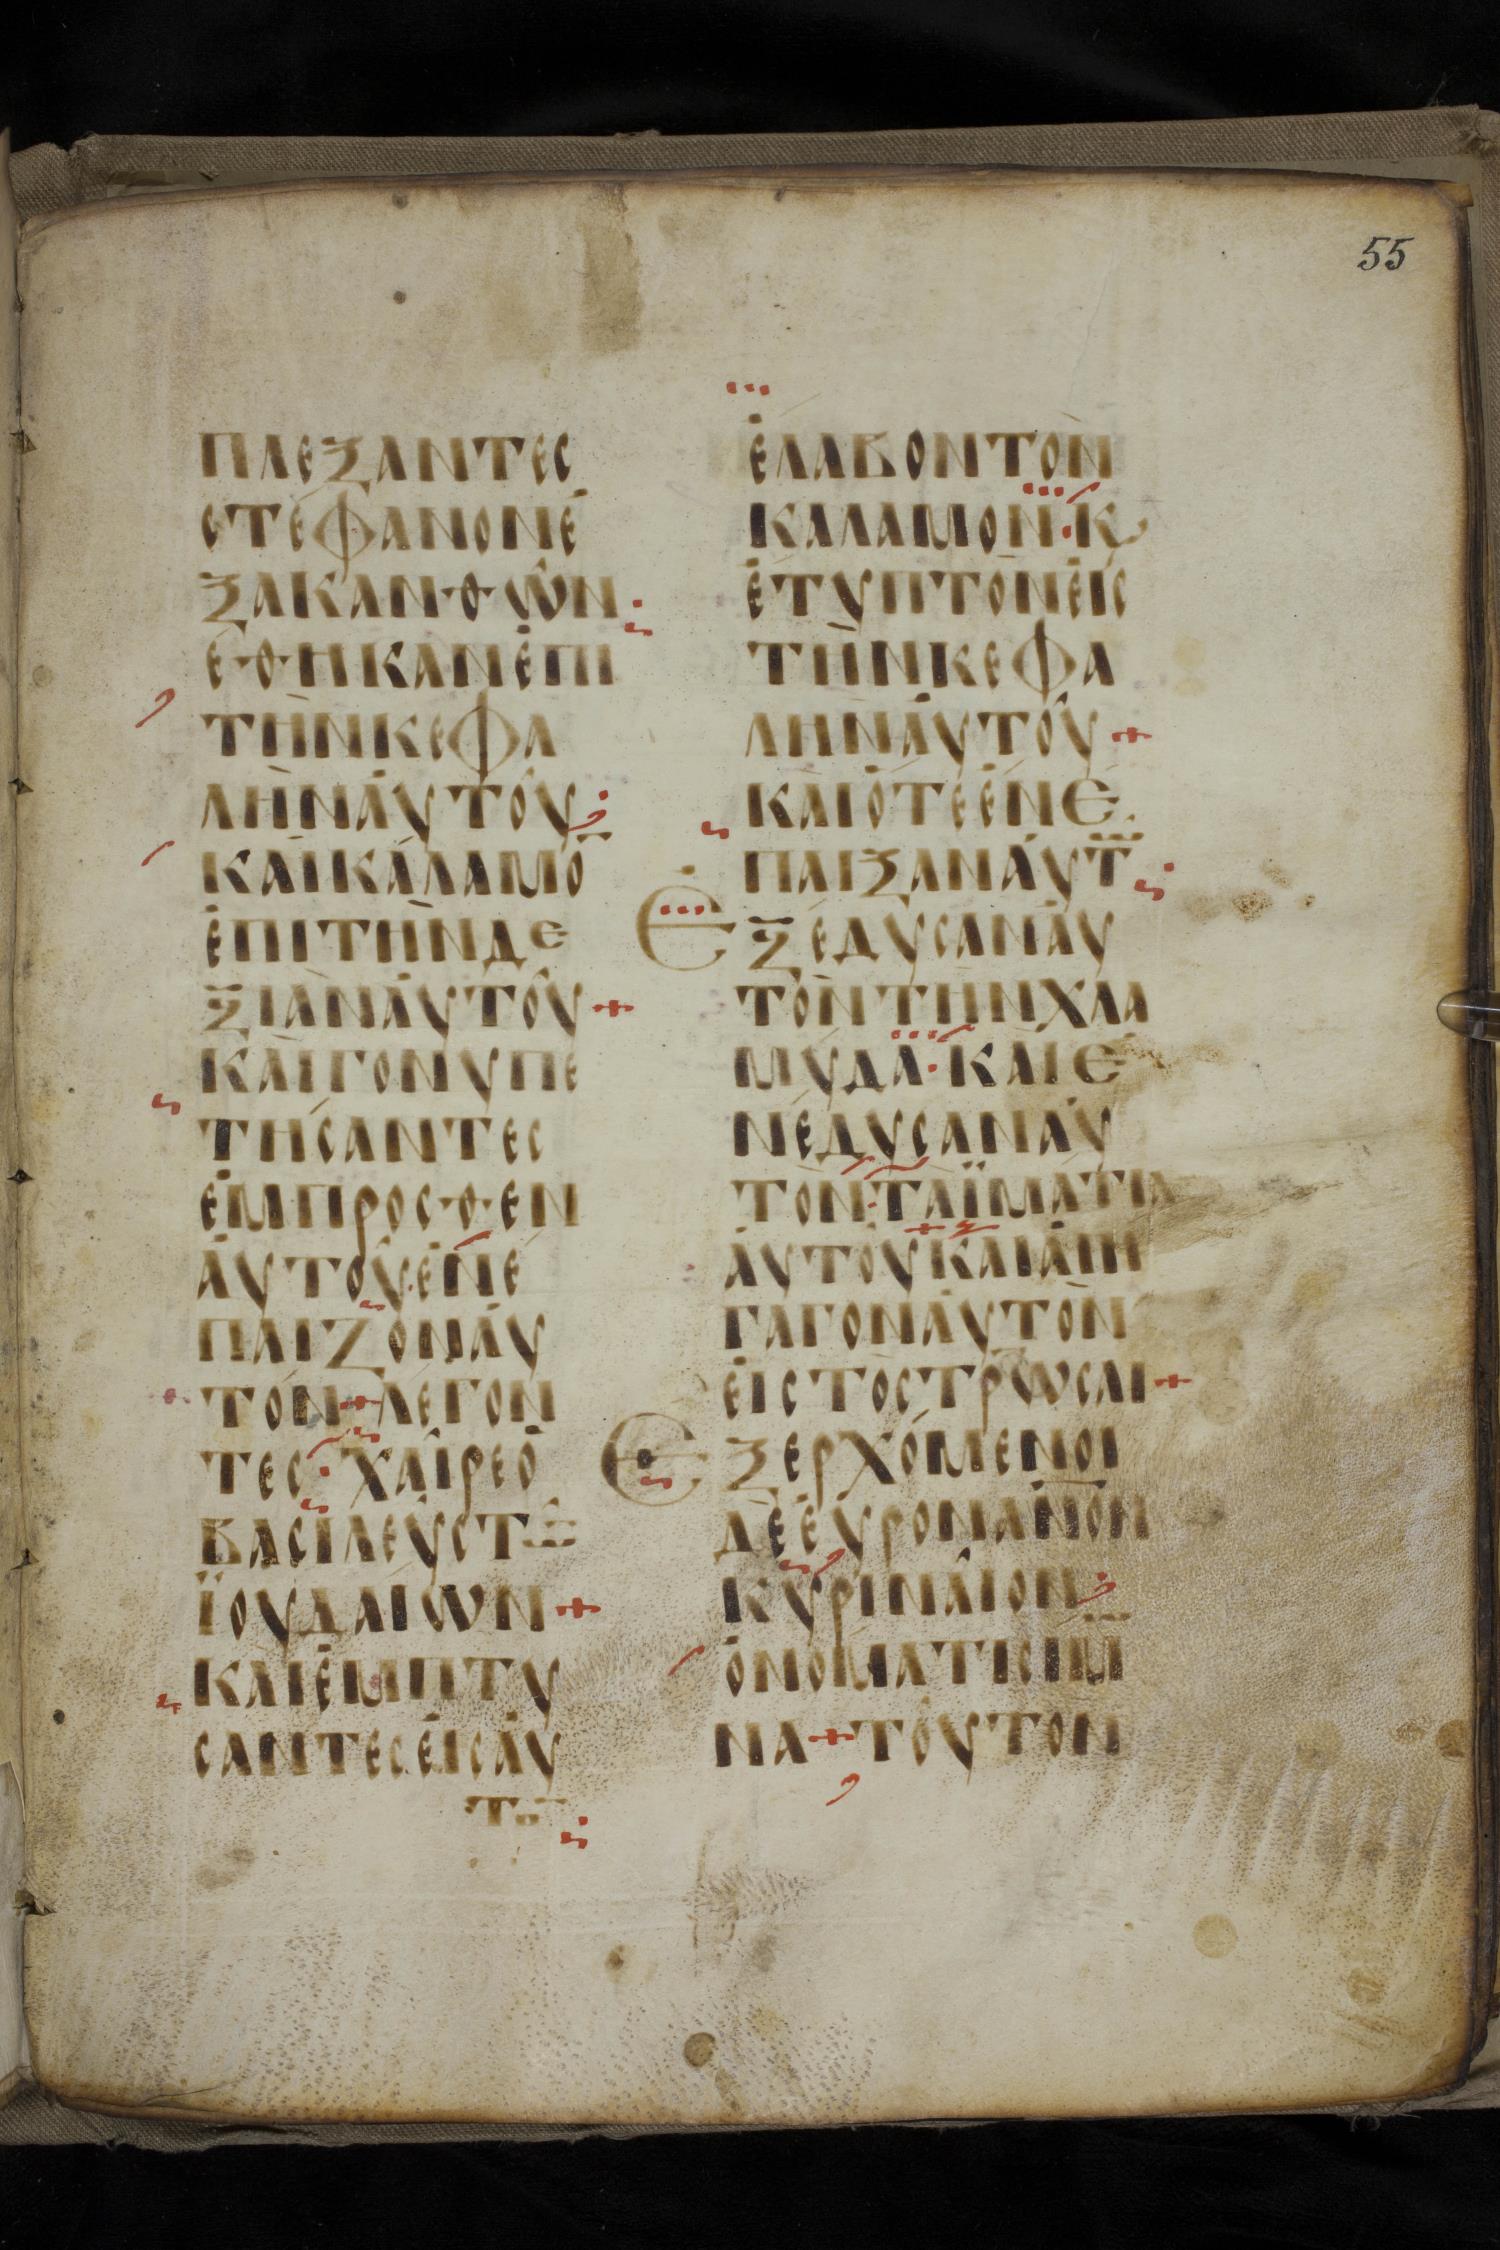 55
ΠΛΕΞΑΝΤΕC
CΤΕΦΑΝΟΝΕ
ΞΑΚΑΝΘῶΝ
ΕΘΗΚΑΝΕΠΙ
ΤΗΝΚΕΦΑ
ΛΗΝΑΥΤΟΥ
ΚΑΙΚΑΛΑΜΟ̅
ΕΠΙΤΗΝΔΕ
ΞΙΑΝΑΥΤΟΥ+
ΚΑΙΓΟΝΥΠΕ
ΤΗCΑΝΤΕC
ΕΜΠΡΟCΘΕΝ
ΑΥΤΟΥ·ΕΝΕ
ΠΑΙΖΟΝΑΥ
ΤΟΝ+ΛΕΓΟΝ
ΤΕC·ΧΑΙΡΕΟ
ΒΑCΙΛΕΥCΤΩ̅
ΪΟΥΔΑΙΩΝ+
ΚΑΙΕΜΠΤΥ
CΑΝΤΕCΕΙCΑΥ
ΤΟ̅
ΕΛΑΒΟΝΤΟΝ
ΚΑΛΑΜΟΝ·Κ
ΕΤΥΠΤΟΝΕΙC
ΤΗΝΚΕΦΑ
ΛΗΝΑΥΤΟΥ+
ΚΑΙΟΤΕΕΝΕ
ΠΑΙΞΑΝΑΥΤ̅
ΕΞΕΔΥCΑΝΑΥ
ΤΟΝΤΗΝΧΛΑ
ΜΥΔΑ·ΚΑΙΕ
ΝΕΔΥCΑΝΑΥ
ΤΟΝ·ΤΑΪΜΑΤΙΑ
ΑΥΤΟΥΚΑΙΑΠΗ
ΓΑΓΟΝΑΥΤΟΝ
ΕΙCΤΟCΤΡΩCΑΙ+
ΕΞΕΡΧΟΜΕΝΟΙ
ΔΕΕΥΡΟΝΑΝΟΝ
ΚΥΡΙΝΑΙΟΝ
ΟΝΟΜΑΤΙCΙΜ̅
ΝΑ+ΤΟΥΤΟΝ